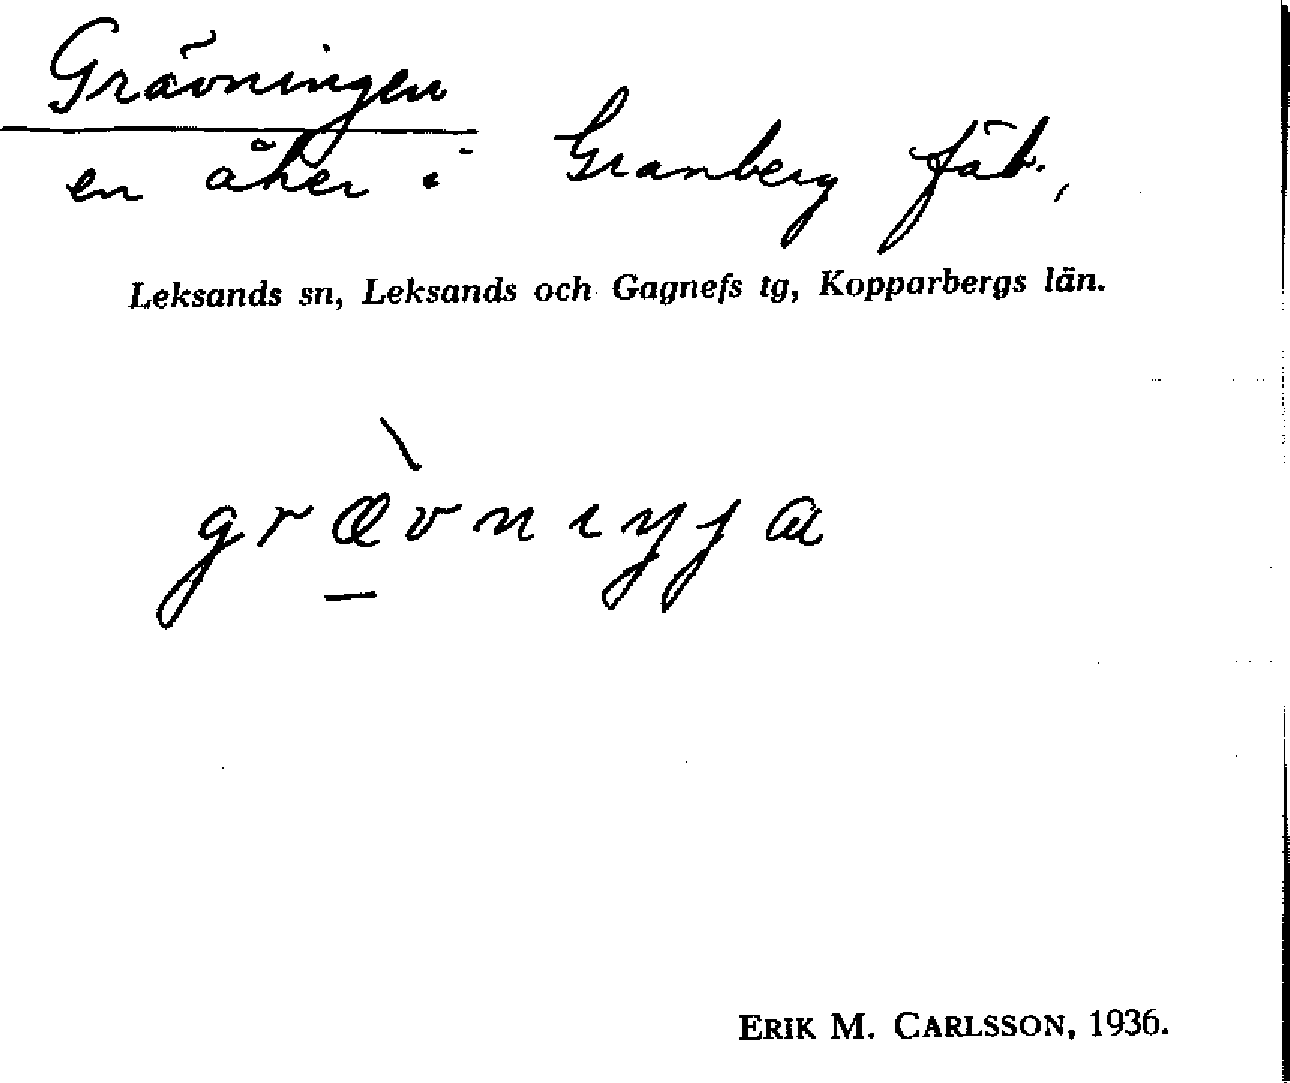 Grävningen
en åker i Granberg fäb.,
Leksands sn, Leksands och Gagnefs tg, Kopparbergs län.
græ̀vnıŋɟa
ERIK M. CARLSSON, 1936.